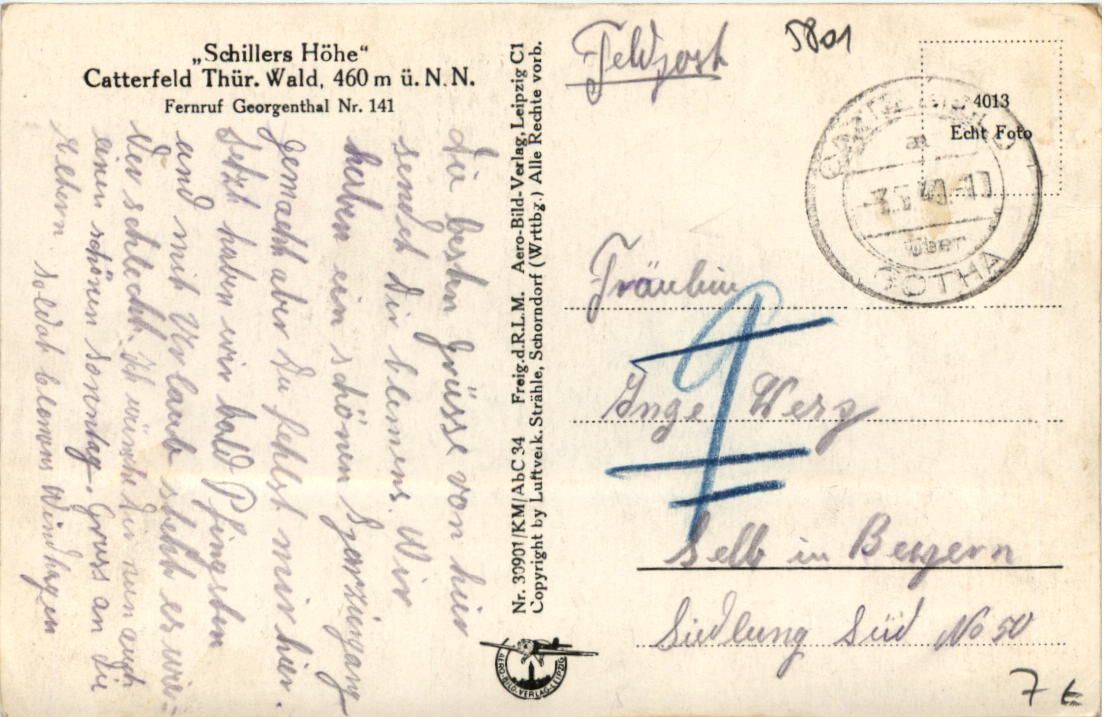 „Schillers Höhe“
Catterfeld Thür. Wald, 460 m ü. N. N.
Fernruf Georgenthal Nr. 141
die besten Grüsse von hier
sendet Dir Clemens. Wir
haben ein schönen Spaziergang
gemacht aber Du fehlst mir hier.
Jetzt haben wir bald Pfingsten
und mit Urlaub steht es wie-
der schlecht. Ich wünsche Dir nun auch
einen schönen Sonntag. Gruss an die
Eltern. Soldat Clemens Windhagen
Nr. 30901/KM/AbC 34 Freig.d.R.L.M. Aero-Bild-Verlag, Leipzig C1
Copyright by Luftverk. Strähle, Schorndorf (Wrttbg.) Alle Rechte vorb.
AERO-BILD-VERLAG-LEIPZIG
Feldpost
5801
4013
Echt Foto
über
GOTHA
Fräulein
Inge Werz
Selb in Beyern
Siedlung Süd No 50
7 €